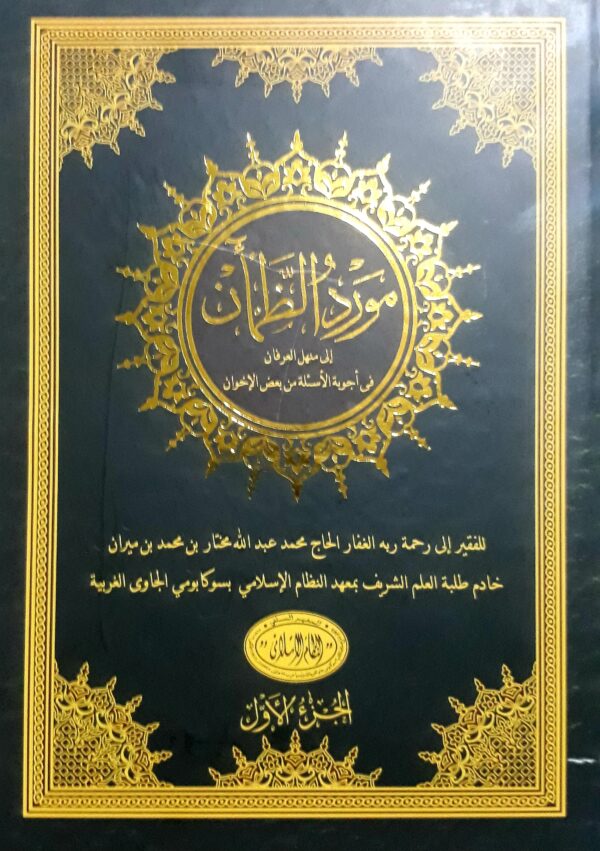 مَوْرِدُ الظَّمْأٰن
إلى منهل العرفان
في أجوبة الأسئلة من بعض الإخوان
للفقير إلى رحمة ربه الغفار الحاج محمد عبد الله مختار بن محمد بن ميران
خادم طلبة العلم الشريف بمعهد النظام الإسلامي بسوكابومي الجاوى الغربية
المعهد السلفي
"النظام الإسلامي"
الجُزْءُ الأَوَّل